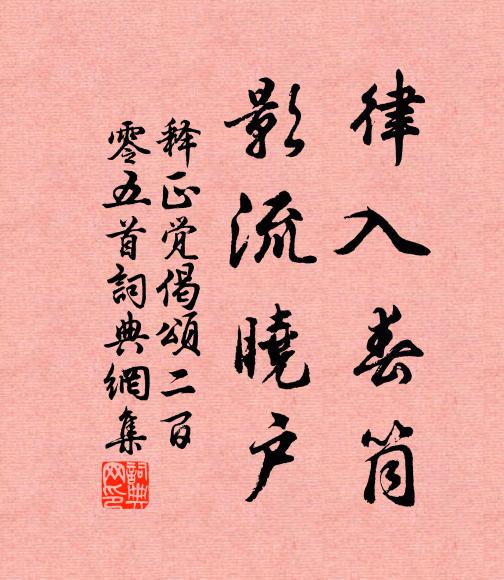 律入春筒
影流曉户
释正觉偈頌二百
零五首詞典網集
詞典网印